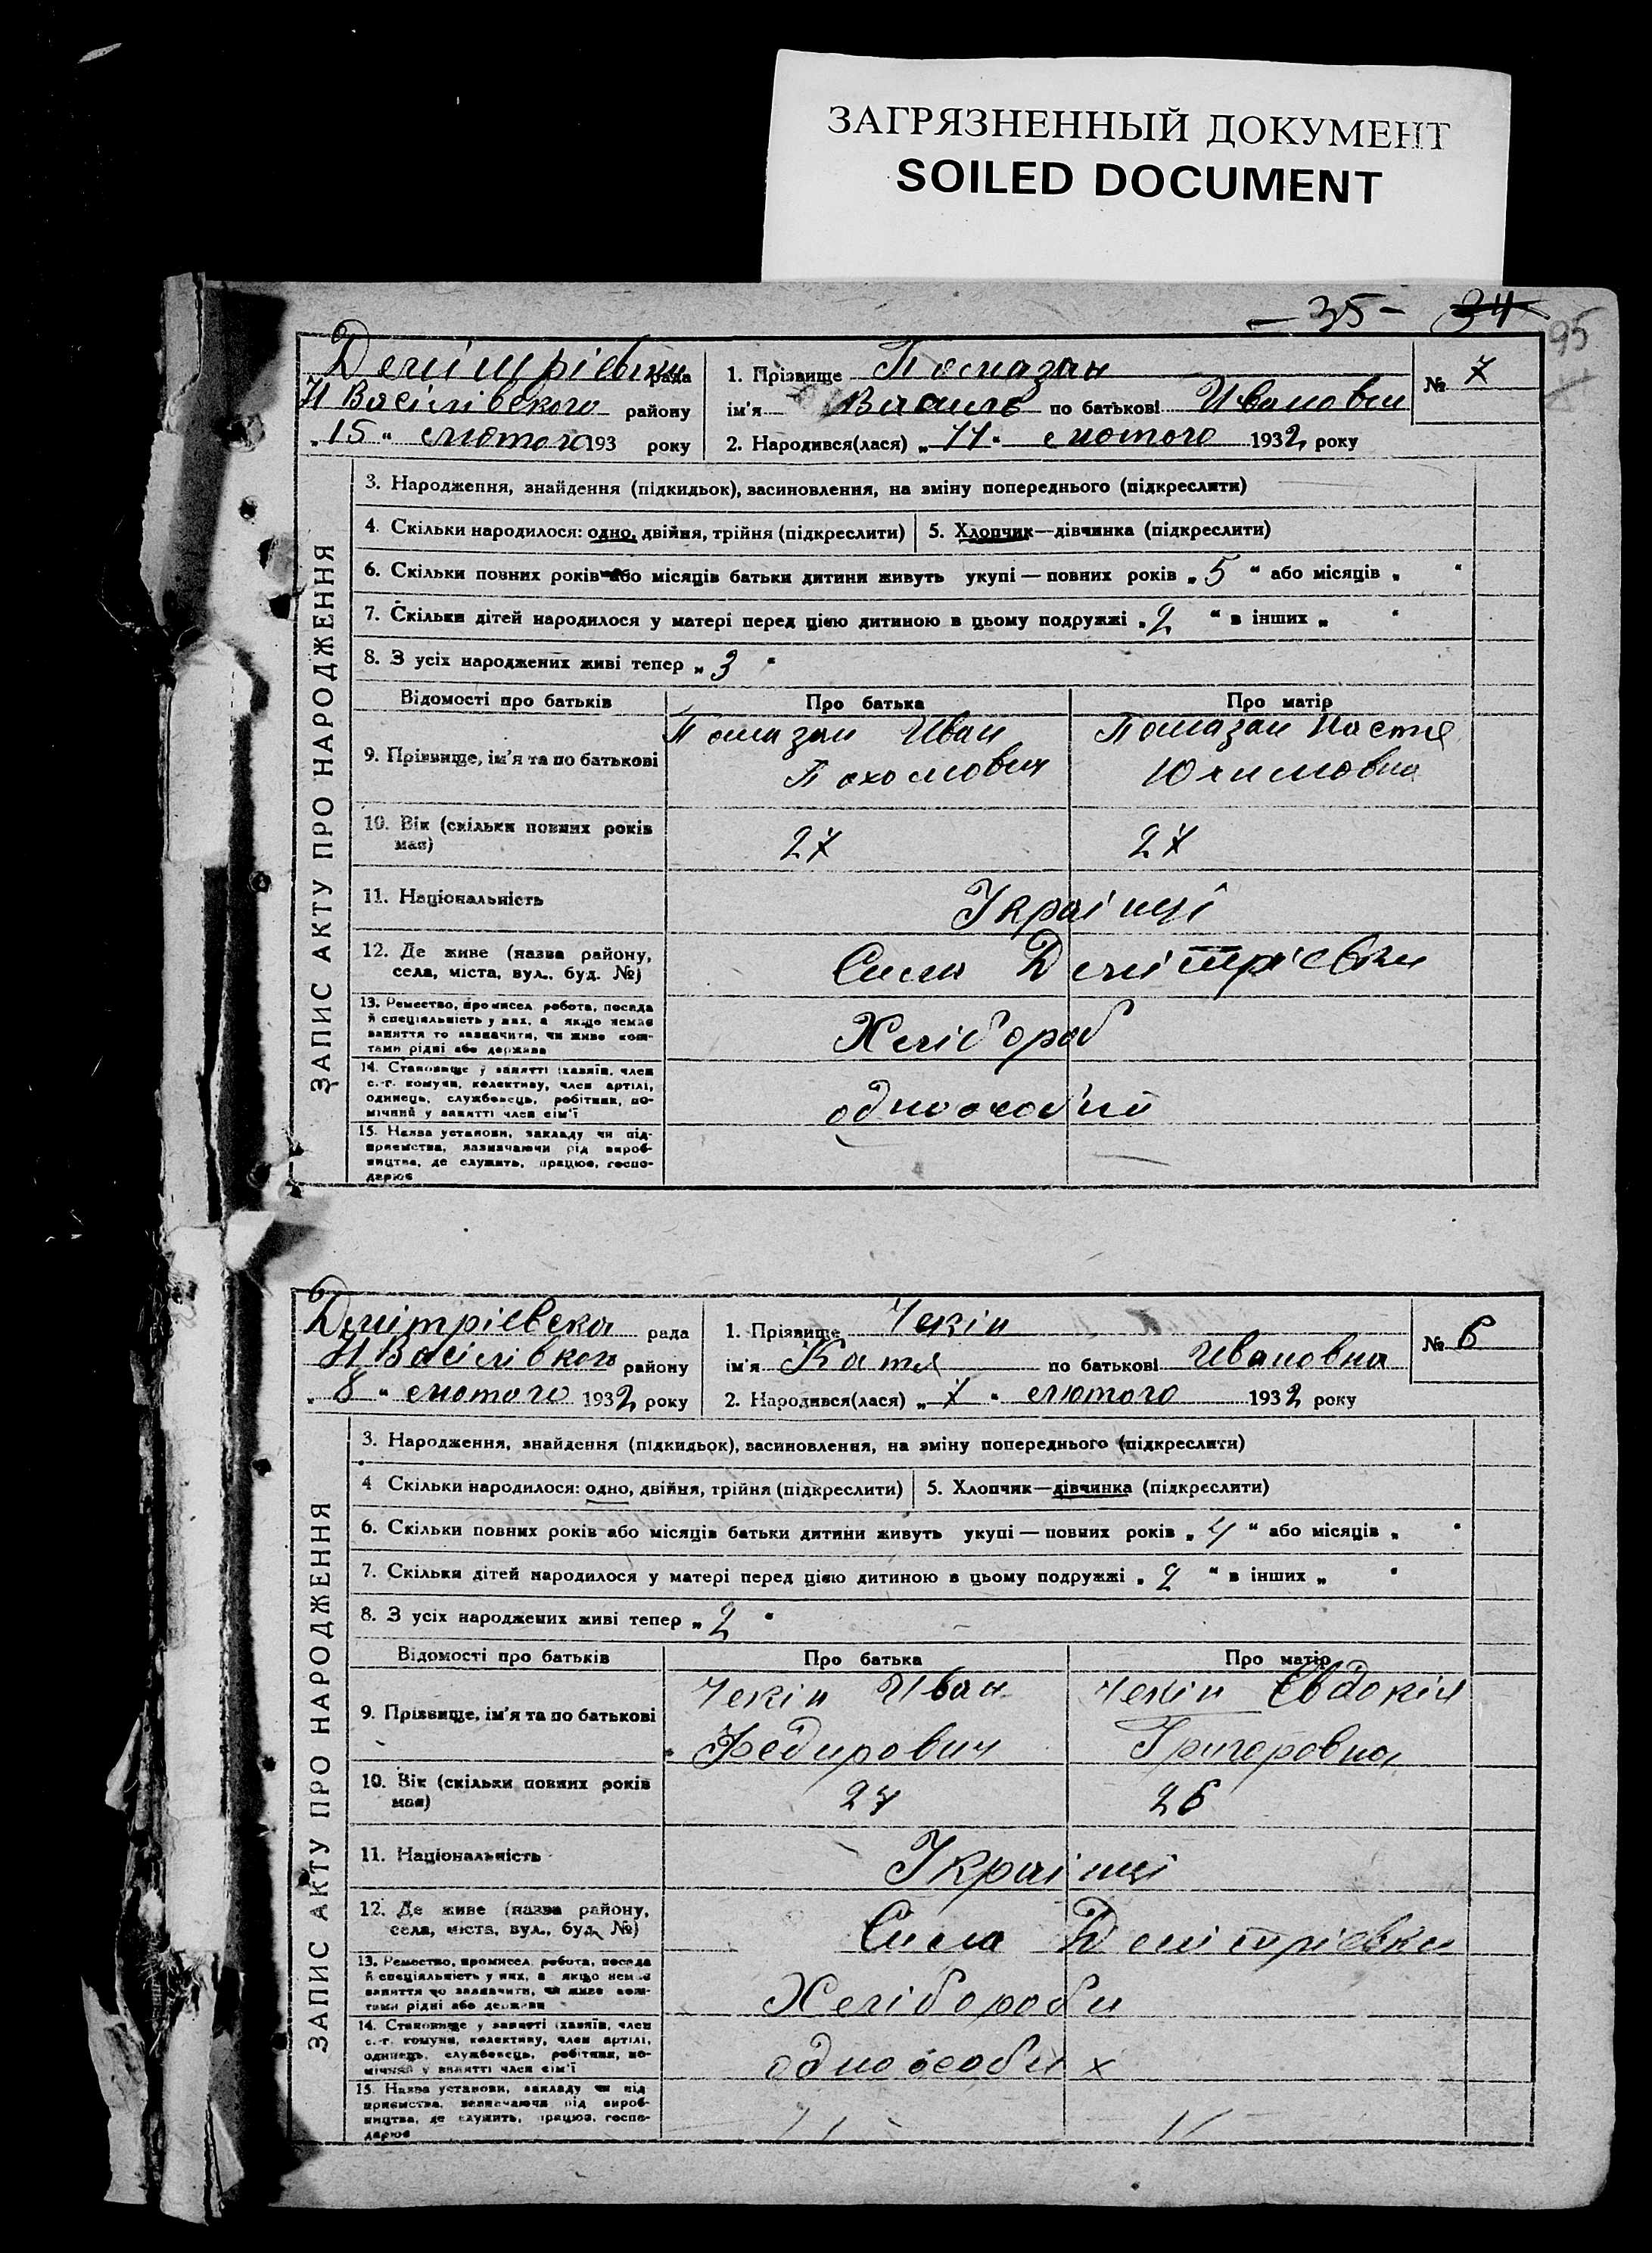 ЗАГРЯЗНЕННЫЙ ДОКУМЕНТ
SOILED DOCUMENT
— 35 – 34
95
Дмітрієвки рада
Н Васілівского району
„15“ лютого 193 року
1. Прізвище Помазан
ім'я Василь по батькові Иванович
2. Народився(лася) „11“ лютого 1932 року
№ 7
ЗАПИС АКТУ ПРО НАРОДЖЕННЯ
3. Народження, знайдення (підкидьок), васиновлення, на зміну попереднього (підкреслити)
4. Скільки народилося: одно, двійня, трійня (підкреслити) 5. Хлопчик—дівчинка (підкреслити)
6. Скільки повних років або місяців батьки дитини живуть укупі — повних років „5“ або місяців „ “
7. Скільки дітей народилося у матері перед цією дитиною в цьому подружжі „2“ в інших „ “
8. З усіх народжених живі тепер „3“
Відомості про батьків Про батька Про матір
9. Прізвище, ім'я та по батькові Помазан Иван Помазан Настя
Похомович Юхимовна
10. Вік (скільки повних років
має) 27 27
11. Національність Украінці
12. Де живе (назва району,
села, міста, вул., буд. №) Сило Дмітрієвки
13. Ремество, промисел, робота, посада
й спеціяльність у них, а якщо немає
заняття то зазначити, чи живе кош-
тами рідні або держави Хлібороб
14. Становище у занятті (хазяїн, член
с.-г. комуни, колективу, член артілі,
одинець, службовець, робітник, по-
мічний у занятті член сім'ї
15. Назва установи, закладу чи під-
приємства, зазначаючи рід вироб-
ництва, де служить, працює, госпо-
дарює
Дмітрієвска рада
Н Васілівкого району
„8“ лютого 1932 року
1. Прізвище Чекін
ім'я Катя по батькові Ивановна
2. Народився(лася) „7“ лютого 1932 року
№ 6
ЗАПИС АКТУ ПРО НАРОДЖЕННЯ
3. Народження, знайдення (підкидьок), васиновлення, на зміну попереднього (підкреслити)
4 Скільки народилося: одно, двійня, трійня (підкреслити) 5. Хлопчик—дівчинка (підкреслити)
6. Скільки повних років або місяців батьки дитини живуть укупі — повних років „4“ або місяців „ “
7. Скільки дітей народилося у матері перед цією дитиною в цьому подружжі „2“ в інших „ “
8. З усіх народжених живі тепер „2“
Відомості про батьків Про батька Про матір
9. Прізвище, ім'я та по батькові Чекін Иван Чекін Євдокія
Федирович Григоровна
10. Вік (скільки повних років
має) 27 26
11. Національність Украінці
12. Де живе (назва району,
села, міста, вул., буд. №) Сила Дмітрієвки
13. Ремество, промисел, робота, посада
й спеціяльність у них, а якщо немає
заняття то зазначити, чи живе кош-
тами рідні або держави Хлібороби
14. Становище у занятті (хазяїн, член
с.-г. комуни, колективу, член артілі,
одинець, службовець, робітник, по-
мічний у занятті член сім'ї
15. Назва установи, закладу чи під
приємства, зазначаючи рід вироб-
ництва, де служить, працює, госпо-
дарює